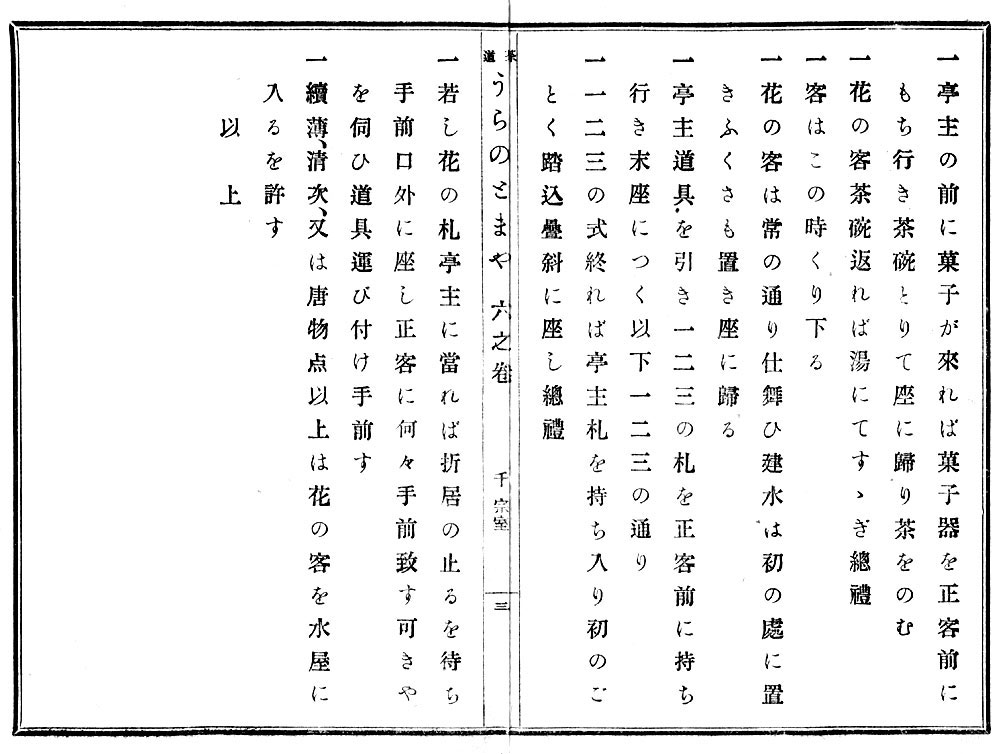 一亭主の前に菓子が來れば菓子器を正客前に
もち行き茶碗とりて座に歸り茶をのむ
一花の客茶碗返れば湯にてすゝぎ總禮
一客はこの時くり下る
一花の客は常の通り仕舞ひ建水は初の處に置
きふくさも置き座に歸る
一亭主道具を引き一二三の札を正客前に持ち
行き末座につく以下一二三の通り
一一二三の式終れば亭主札を持ち入り初のご
とく踏込疊斜に座し總禮
茶道
うらのとまや 六之卷
千宗室
三
一若し花の札亭主に當れば折居の止るを待ち
手前口外に座し正客に何々手前致す可きや
を伺ひ道具運び付け手前す
一續薄、清次、又は唐物点以上は花の客を水屋に
入るを許す
以上